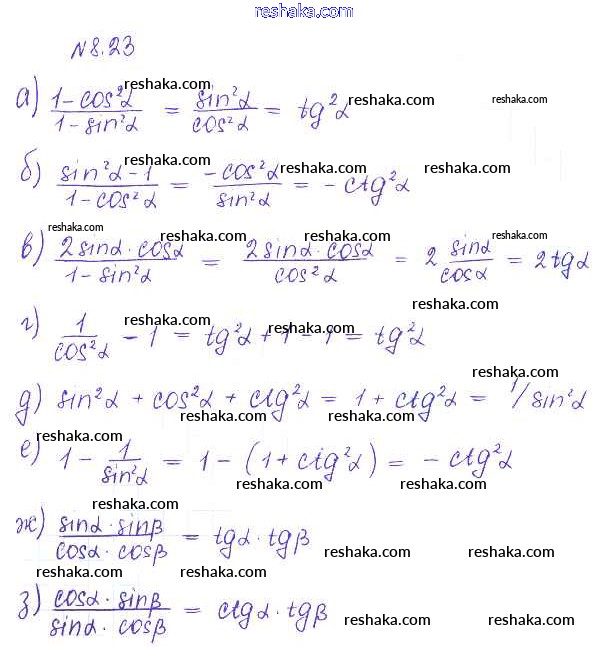 reshaka.com
N 8.23
reshaka.com reshaka.com reshaka.com
а) (1-cos²α)/(1-sin²α) = sin²α/cos²α = tg²α
reshaka.com reshaka.com reshaka.com
б) (sin²α-1)/(1-cos²α) = -cos²α/sin²α = -ctg²α
reshaka.com reshaka.com reshaka.com reshaka.com
в) (2sinα·cosα)/(1-sin²α) = (2sinα·cosα)/cos²α = 2 sinα/cosα = 2tgα
reshaka.com
reshaka.com reshaka.com
г) 1/cos²α - 1 = tg²α + 1 - 1 = tg²α
reshaka.com reshaka.com
д) sin²α + cos²α + ctg²α = 1 + ctg²α = 1/sin²α
reshaka.com reshaka.com
reshaka.com
е) 1 - 1/sin²α = 1 - (1 + ctg²α) = -ctg²α
reshaka.com reshaka.com
reshaka.com
ж) (sinα·sinβ)/(cosα·cosβ) = tgα·tgβ
reshaka.com reshaka.com
reshaka.com reshaka.com reshaka.com
з) (cosα·sinβ)/(sinα·cosβ) = ctgα·tgβ
reshaka.com reshaka.com